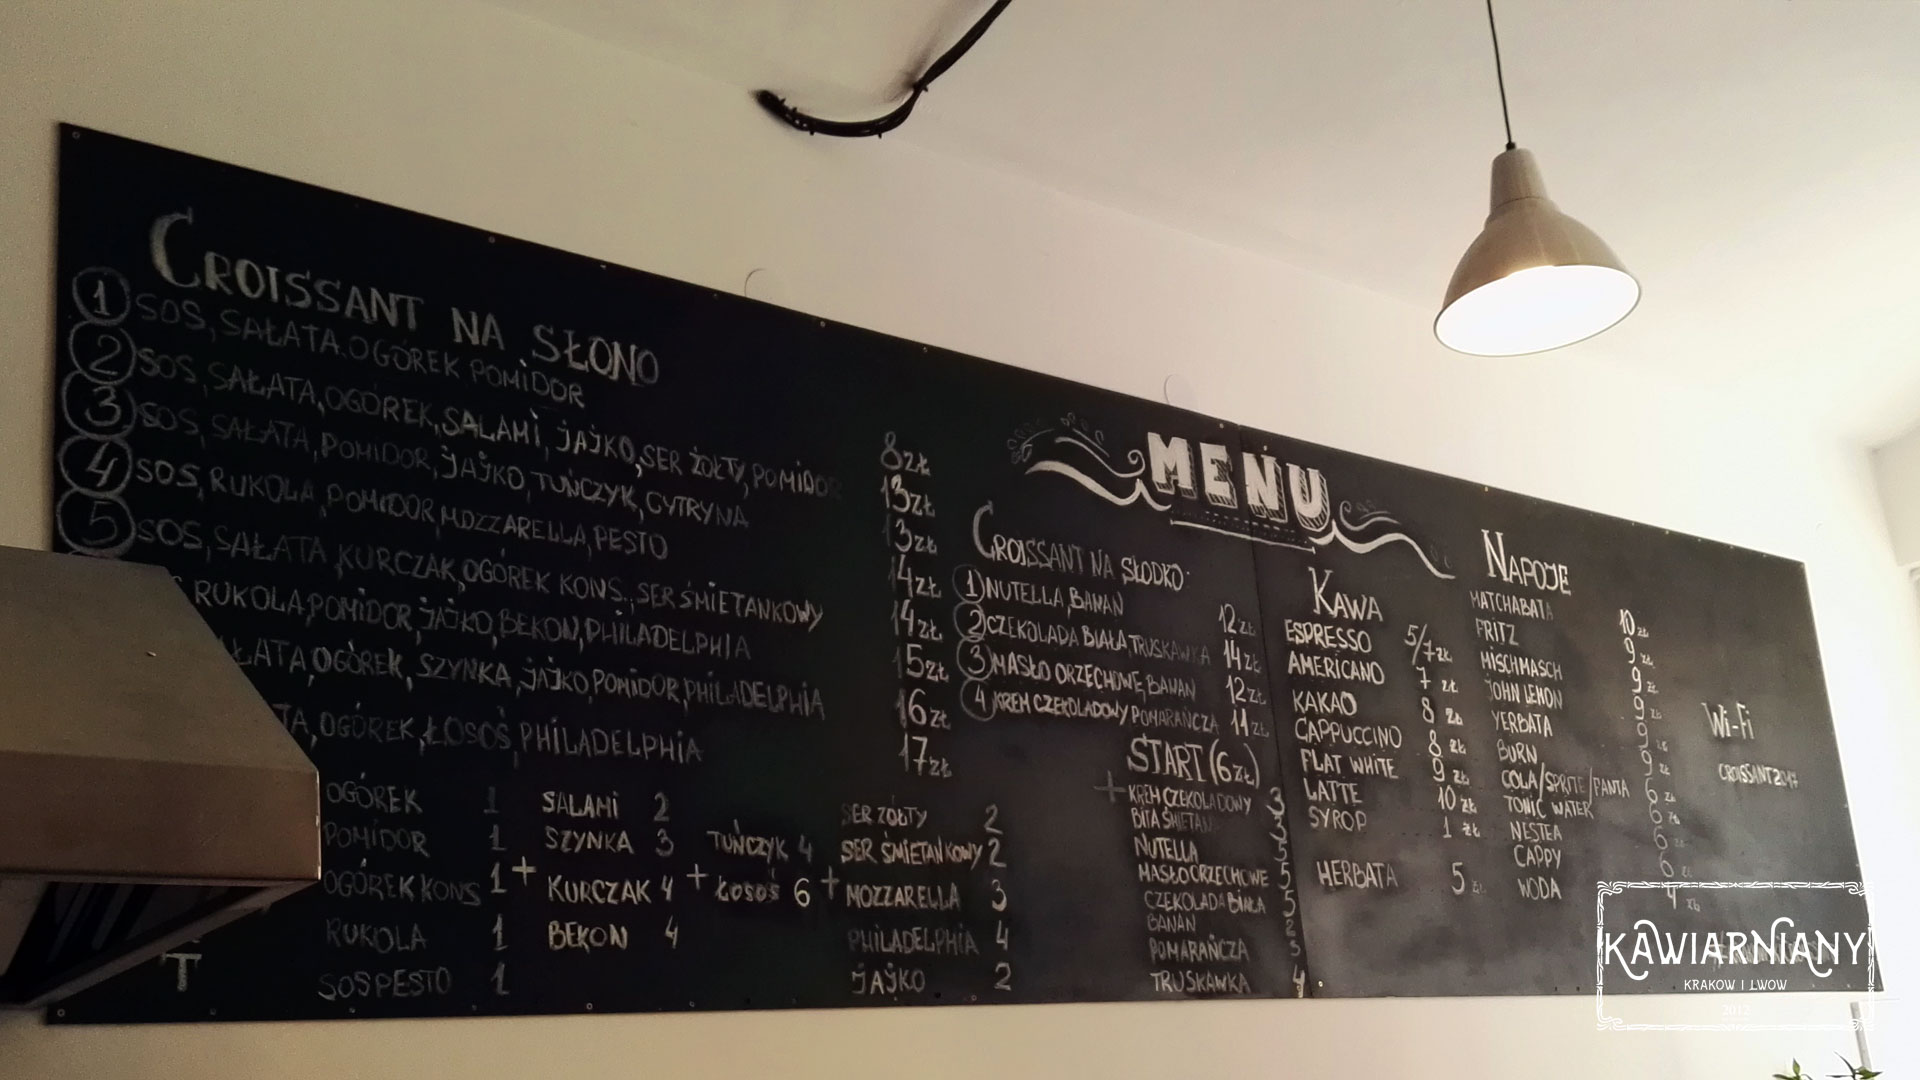 CROISSANT NA SŁONO
1 SOS, SAŁATA, OGÓREK, POMIDOR 8 ZŁ
2 SOS, SAŁATA, OGÓREK, SALAMI, JAJKO, SER ŻOŁTY, POMIDOR 13 ZŁ
3 SOS, SAŁATA, POMIDOR, JAJKO, TUŃCZYK, CYTRYNA 13 ZŁ
4 SOS, RUKOLA, POMIDOR, MOZZARELLA, PESTO 14 ZŁ
5 SOS, SAŁATA, KURCZAK, OGÓREK KONS., SER ŚMIETANKOWY 14 ZŁ
RUKOLA, POMIDOR, JAJKO, BEKON, PHILADELPHIA 15 ZŁ
OGÓREK, SZYNKA, JAJKO, POMIDOR, PHILADELPHIA 16 ZŁ
OGÓREK, ŁOSOŚ, PHILADELPHIA 17 ZŁ
OGÓREK 1
POMIDOR 1
OGÓREK KONS 1
RUKOLA 1
SOS PESTO 1
+
SALAMI 2
SZYNKA 3
KURCZAK 4
BEKON 4
+
TUŃCZYK 4
ŁOSOŚ 6
+
SER ŻOŁTY 2
SER ŚMIETANKOWY 2
MOZZARELLA 3
PHILADELPHIA 4
JAJKO 2
MENU
CROISSANT NA SŁODKO
1 NUTELLA, BANAN 12 ZŁ
2 CZEKOLADA BIAŁA, TRUSKAWKA 14 ZŁ
3 MASŁO ORZECHOWE, BANAN 12 ZŁ
4 KREM CZEKOLADOWY POMARAŃCZA 11 ZŁ
START (6 ZŁ)
+ KREM CZEKOLADOWY 3
BITA ŚMIETAN
NUTELLA
MASŁO ORZECHOWE 5
CZEKOLADA BIAŁA 5
BANAN 2
POMARAŃCZA 3
TRUSKAWKA 4
KAWA
ESPRESSO 5/7 ZŁ
AMERICANO 7 ZŁ
KAKAO 8 ZŁ
CAPPUCCINO 8 ZŁ
FLAT WHITE 9 ZŁ
LATTE 10 ZŁ
SYROP 1 ZŁ
HERBATA 5 ZŁ
NAPOJE
MATCHABATA 10 ZŁ
FRITZ 9 ZŁ
MISCHMASCH 9 ZŁ
JOHN LEMON 9 ZŁ
YERBATA 9 ZŁ
BURN 9 ZŁ
COLA/SPRITE/FANTA 6 ZŁ
TONIC WATER 6 ZŁ
NESTEA 6 ZŁ
CAPPY 6 ZŁ
WODA 4 ZŁ
Wi-Fi
CROISSANT2017
KAWIARNIANY
KRAKÓW I LWÓW
2012